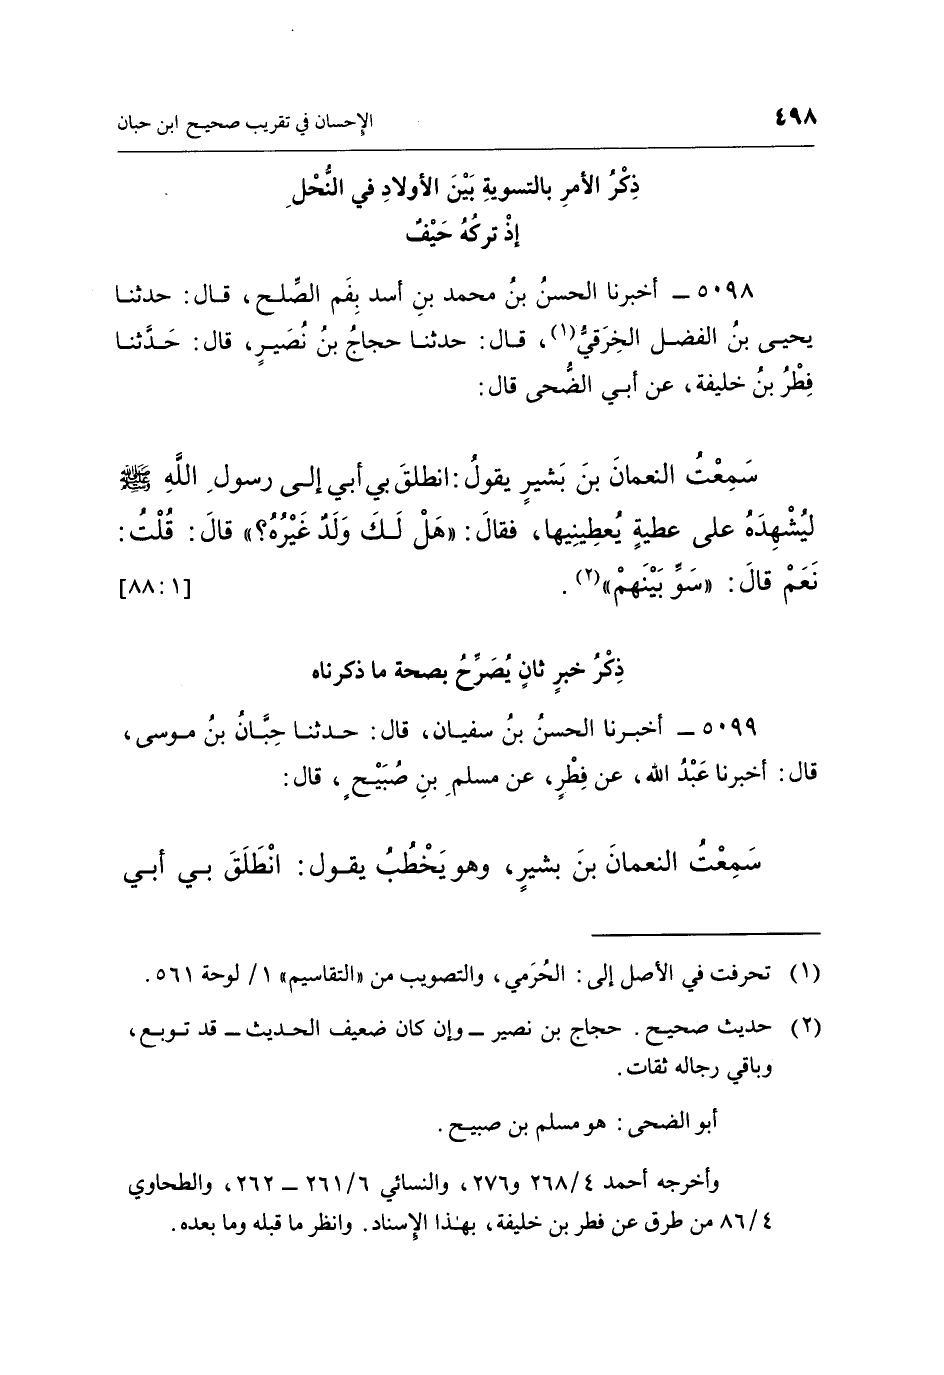 ٤٩٨ الإحسان في تقريب صحيح ابن حبان
ذِكْرُ الأمرِ بالتسويةِ بَيْنَ الأولادِ في النُّحْلِ
إذْ تركُهُ حَيْفٌ
٥٠٩٨ ـ أخبرنا الحسنُ بنُ محمد بنِ أسد بِفَم الصِّلح، قال: حدثنا
يحيى بنُ الفضل الخِرَقيُّ(١)، قال: حدثنا حجاجُ بنُ نُصَيرٍ، قال: حَدَّثنا
فِطْرُ بنُ خليفة، عن أبي الضُّحى قال:
سَمِعْتُ النعمانَ بنَ بَشيرٍ يقولُ: انطلقَ بي أبي إلى رسولِ اللَّهِ ﷺ
لِيُشْهِدَهُ على عطيةٍ يُعطِينِيها، فقالَ: «هَلْ لَكَ وَلَدٌ غَيْرُهُ؟» قالَ: قُلْتُ:
نَعَمْ قالَ: «سَوِّ بَيْنَهمْ»(٢). [١: ٨٨]
ذِكْرُ خبرٍ ثانٍ يُصَرِّحُ بصحة ما ذكرناه
٥٠٩٩ ـ أخبرنا الحسنُ بنُ سفيان، قال: حدثنا حِبَّانُ بنُ موسى،
قال: أخبرنا عَبْدُ الله، عن فِطْرٍ، عن مسلمِ بنِ صُبَيْحٍ، قال:
سَمِعْتُ النعمانَ بنَ بشيرٍ، وهو يَخْطُبُ يقول: انْطَلَقَ بي أبي
(١) تحرفت في الأصل إلى: الحُرَمي، والتصويب من «التقاسيم» ١/ لوحة ٥٦١.
(٢) حديث صحيح. حجاج بن نصير ـ وإن كان ضعيف الحديث ـ قد توبع،
وباقي رجاله ثقات.
أبو الضحى: هو مسلم بن صبيح.
وأخرجه أحمد ٢٦٨/٤ و٢٧٦، والنسائي ٢٦١/٦ ـ ٢٦٢، والطحاوي
٨٦/٤ من طرق عن فطر بن خليفة، بهذا الإسناد. وانظر ما قبله وما بعده.